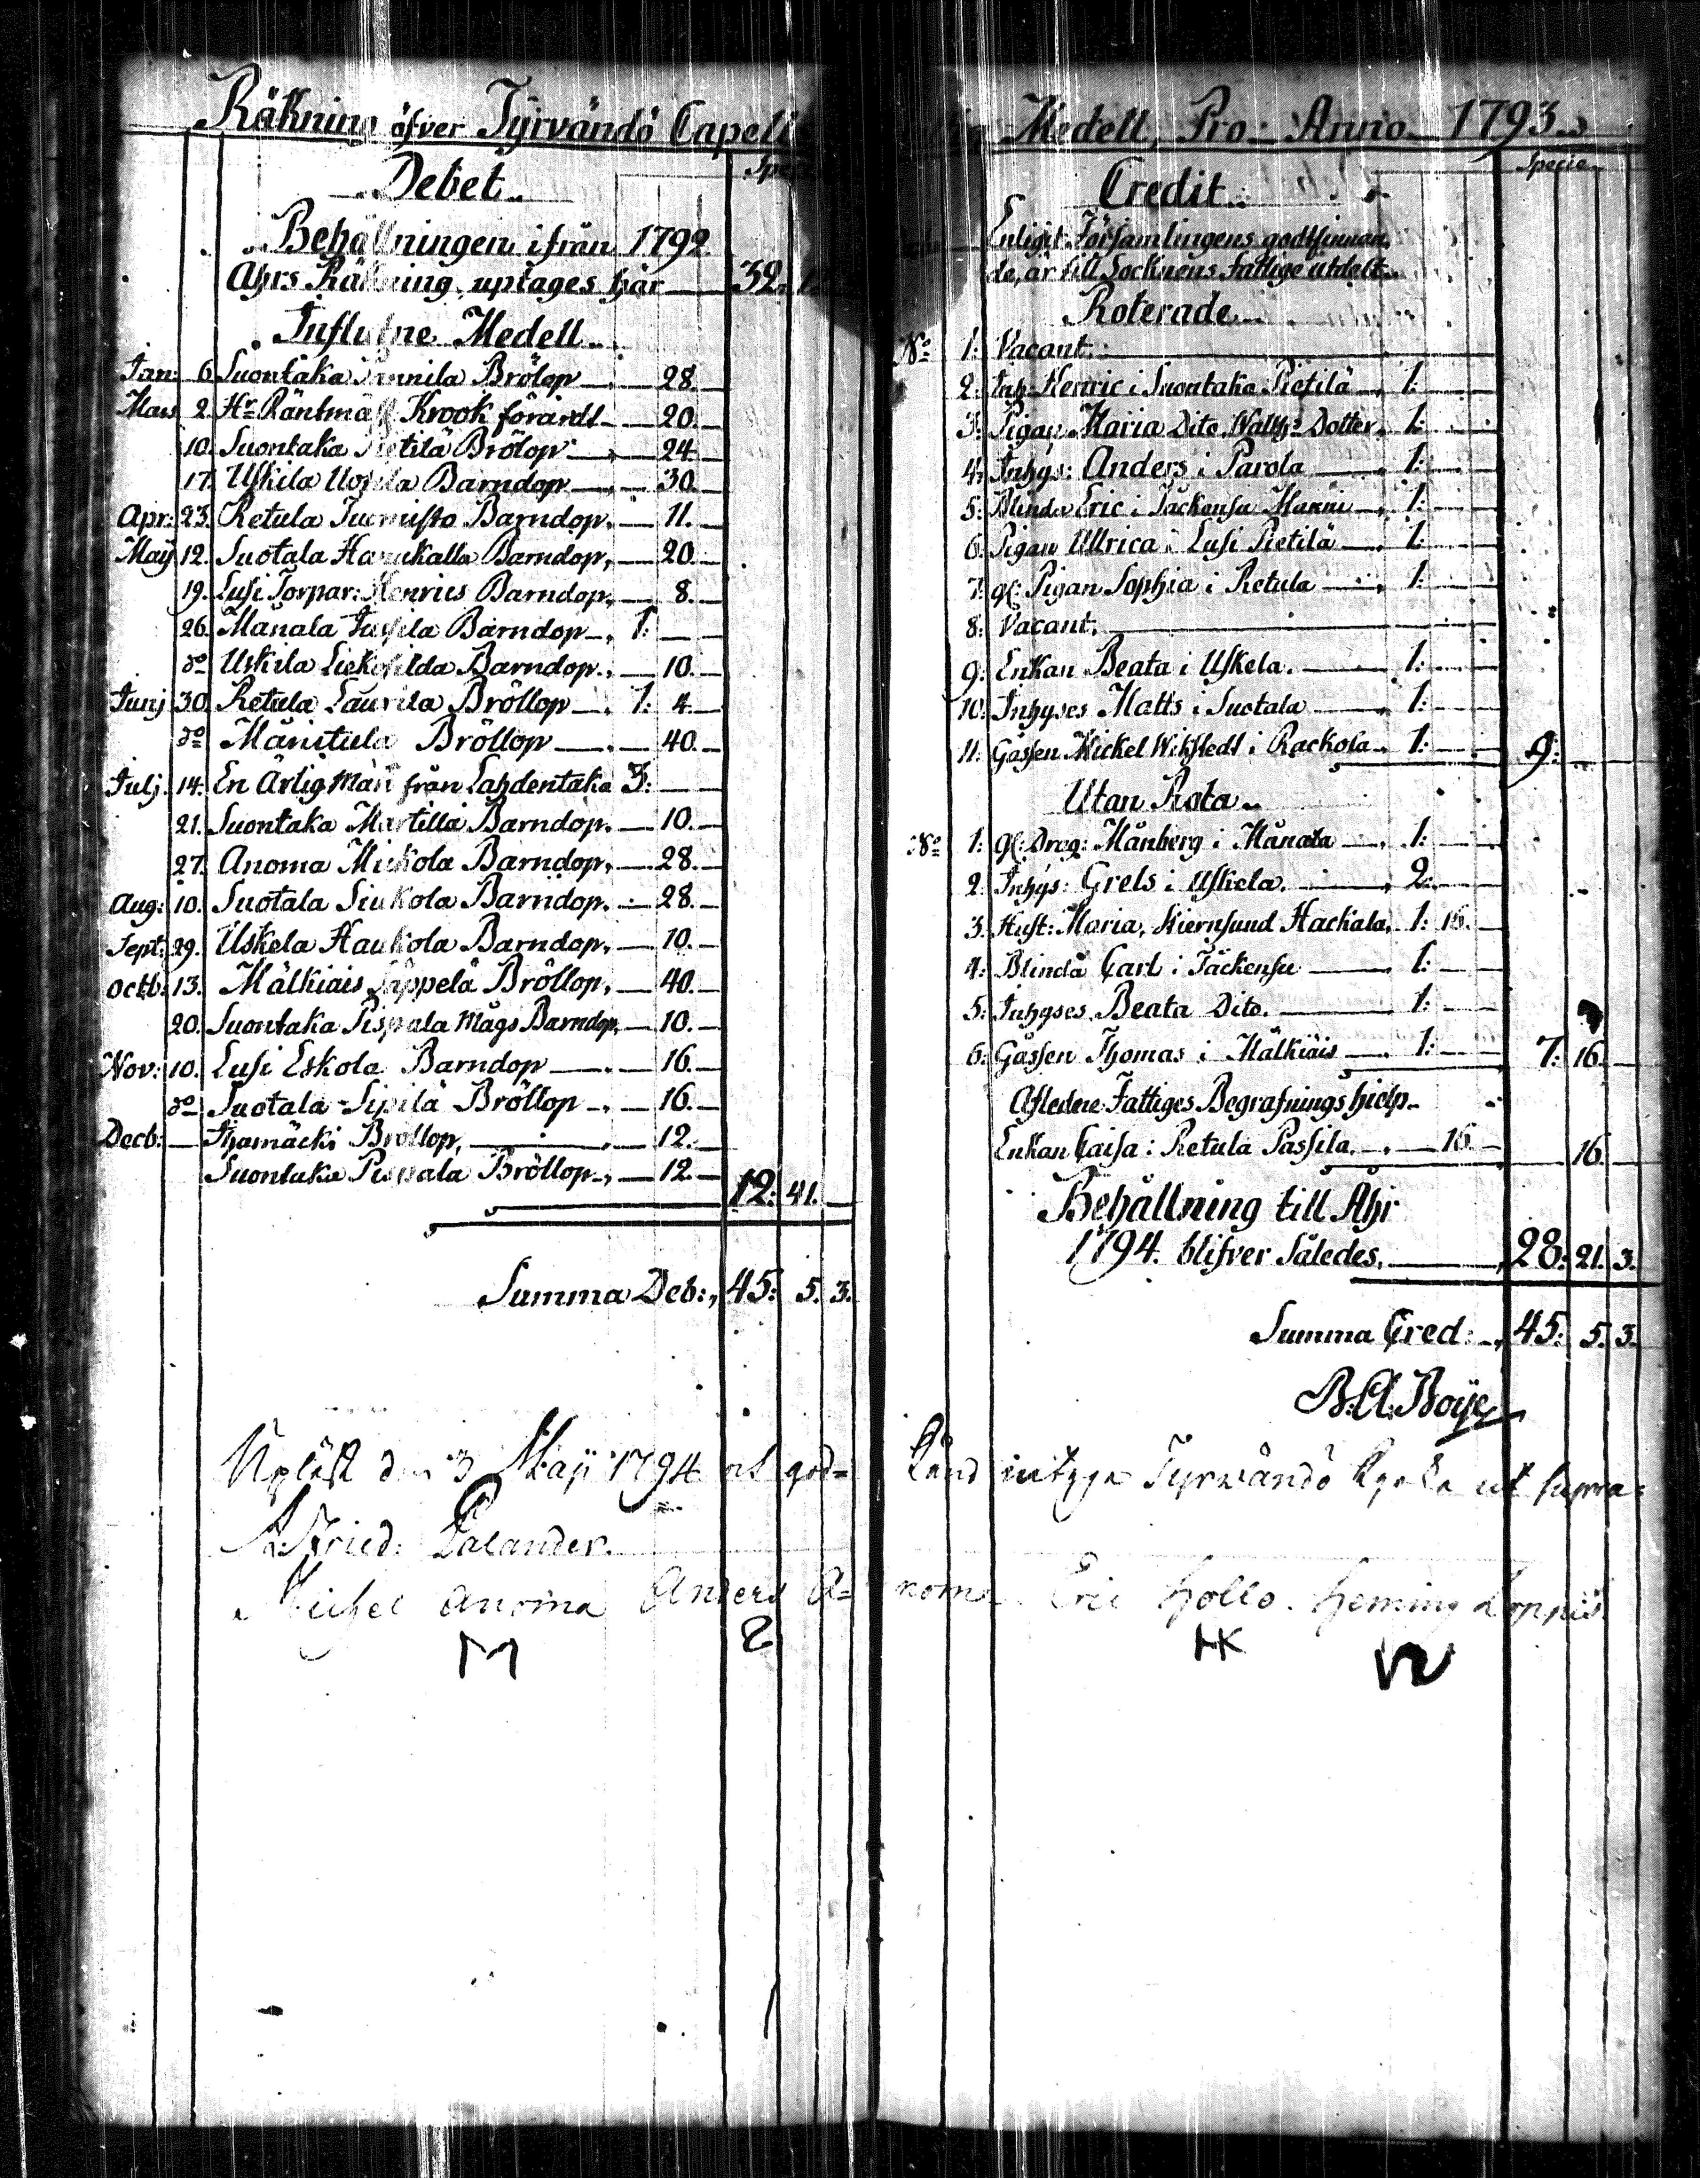 Räkning öfver Tyrvändö Capell
Debet
Specie
Behållningen ifrån 1792
Ahrs Räkning, uptages här — 32.
Influtne Medell
Jan: 6. Suontaka Brölop — 28. —
Mars 2. Hr Räntmäst Krook förärdt — 20. —
10. Suontaka Pietilä Brölop — 24. —
17. Uskila Barndop — 30. —
Apr: 23. Retula Tuomisto Barndop, — 11. —
Maÿ 12. Suotala Hanukalla Barndop, — 20. —
19. Lusi Torpar: Henrics Barndop, — 8. —
26. Månala Jussila Barndop — 1: — —
do Uskila Barndop — 10. —
Junj 30. Retula Laurila Bröllop — 1: 4. —
do Mänitula Bröllop — 40. —
Julj. 14. En Ärlig Man från Lahdentaka 3: — —
21. Suontaka Martilla Barndop. — 10. —
27. Anoma Mickola Barndop, — 28. —
Aug: 10. Suotala Siukola Barndop. — 28. —
Sept: 29. Uskela Haukola Barndop, — 10. —
Octb: 13. Mälkiais Bröllop, — 40. —
20. Suontaka Pispala Mågs Barndop, — 10. —
Nov: 10. Lusi Eskola Barndop — 16. —
do Suotala Sipilä Bröllop — 16. —
Decb: — Ihamäcki Bröllop, — 12. —
Suontaka Pispala Bröllop — 12. —
12: 41. —
Summa Deb:, 45: 5. 3.
Medell, Pro Anno 1793
Credit
Specie
Enligit Församlingens godtfinnan
de, är till Socknens fattige utdelt
Roterade
No 1: Vacant. —
2: Inh: Henric i Suontaka Pietilä — 1: —
3: Pigan Maria Dito, Walbs Dotter — 1: —
4: Inhys: Anders i Parola — 1: —
5: Blinda Eric i Jäckensu Manni — 1: —
6: Pigan Ullrica i Lusi Pietilä — 1: —
7: gl: Pigan Sophia i Retula — 1: —
8: Vacant. —
9: Enkan Beata i Uskela. — 1: —
10: Inhyses Matts i Suotala — 1: —
11: Gåssen Mickel Wikstedt i Rackola — 1: — 9: —
Utan Rota
No 1: gl: Drag: Månberg i Månala — 1: —
2: Inhys: Grels i Uskela. — 2: —
3. Hust: Maria, Kiernsund Hackala, 1: 16. —
4: Blinda Carl i Jäckensu — 1: —
5: Inhyses Beata Dito. — 1: —
6: Gåssen Thomas i Mälkiäis — 1: — 7: 16. —
Afledne Fattiges Begrafnings hielp
Enkan Caisa i Retula Passila. — 16. — 16. —
Behållning till Ahr
1794. blifver Således. — 28: 21. 3.
Summa Cred: — 45: 5. 3.
B: A: Boije
Upläst den 3 Maji 1794 och god= känd intyga Tyrwändö ut supra.
A: Fried: Palander.
Michel Anoma Anders A= noma Eric Hollo. Heming
M HK